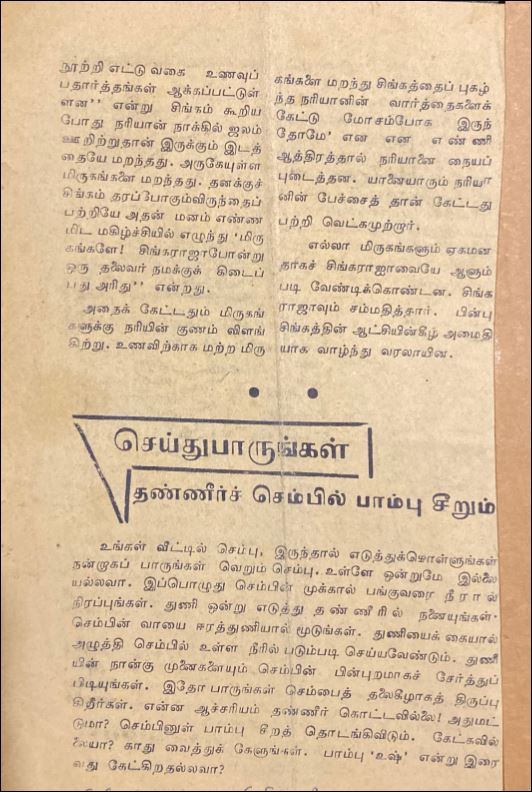 நூற்றி எட்டு வகை உணவுப்
பதார்த்தங்கள் ஆக்கப்பட்டுள்
ளன'' என்று சிங்கம் கூறிய
போது நரியான் நாக்கில் ஜலம்
ஊறிற்றுதான் இருக்கும் இடத்
தையே மறந்தது. அருகேயுள்ள
மிருகங்களை மறந்தது. தனக்குச்
சிங்கம் தரப்போகும்விருந்தைப்
பற்றியே அதன் மனம் எண்ண
மிட மகிழ்ச்சியில் எழுந்து 'மிரு
கங்களே! சிங்கராஜாபோன்று
ஒரு தலைவர் நமக்குக் கிடைப்
பது அரிது'' என்றது.
அதைக் கேட்டதும் மிருகங்
களுக்கு நரியின் குணம் விளங்
கிற்று. உணவிற்காக மற்ற மிரு
கங்களை மறந்து சிங்கத்தைப் புகழ்
ந்த நரியானின் வார்த்தைகளைக்
கேட்டு மோசம்போக இருந்
தோமே' என என எண்ணி
ஆத்திரத்தால் நரியானை நையப்
புடைத்தன. யானையாரும் நரியா
னின் பேச்சைத் தான் கேட்டது
பற்றி வெட்கமுற்றார்.
எல்லா மிருகங்களும் ஏகமன
தாகச் சிங்கராஜாவையே ஆளும்
படி வேண்டிக்கொண்டன. சிங்க
ராஜாவும் சம்மதித்தார். பின்பு
சிங்கத்தின் ஆட்சியின்கீழ் அமைதி
யாக வாழ்ந்து வரலாயின.
செய்துபாருங்கள்
தண்ணீர்ச் செம்பில் பாம்பு சீறும்
உங்கள் வீட்டில் செம்பு, இருந்தால் எடுத்துக்கொள்ளுங்கள்
நன்றாகப் பாருங்கள் வெறும் செம்பு. உள்ளே ஒன்றுமே இல்லை
யல்லவா. இப்பொழுது செம்பின் முக்கால் பங்குவரை நீரால்
நிரப்புங்கள். துணி ஒன்று எடுத்து தண்ணீரில் நனையுங்கள்.
செம்பின் வாயை ஈரத்துணியால் மூடுங்கள். துணியைக் கையால்
அழுத்தி செம்பில் உள்ள நீரில் படும்படி செய்யவேண்டும். துணி
யின் நான்கு முனைகளையும் செம்பின் பின்புறமாகச் சேர்த்துப்
பிடியுங்கள். இதோ பாருங்கள் செம்பைத் தலைகீழாகத் திருப்பு
கிறீர்கள். என்ன ஆச்சரியம் தண்ணீர் கொட்டவில்லை! அதுமட்
டுமா? செம்பினுள் பாம்பு சீறத் தொடங்கிவிடும். கேட்கவில்
லையா? காது வைத்துக் கேளுங்கள். பாம்பு 'உஷ்' என்று இரை
வது கேட்கிறதல்லவா?